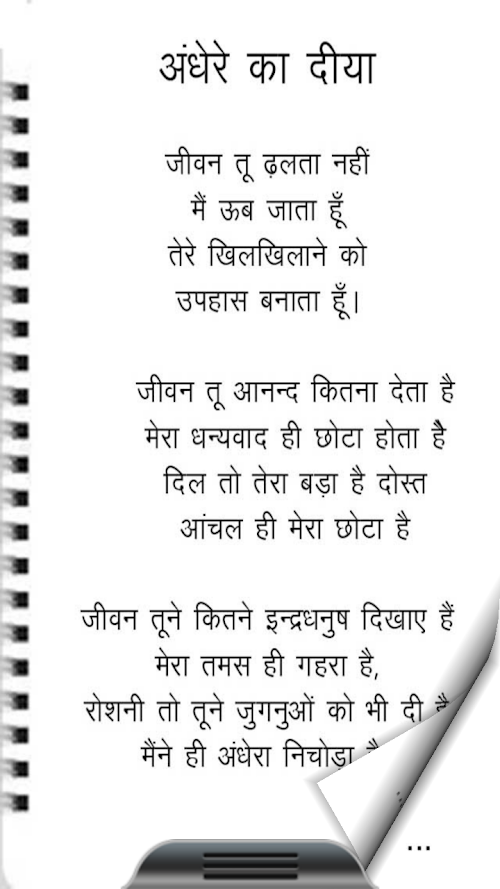 अंधेरे का दीया
जीवन तू ढ़लता नहीं
मैं ऊब जाता हूँ
तेरे खिलखिलाने को
उपहास बनाता हूँ।
जीवन तू आनन्द कितना देता है
मेरा धन्यवाद ही छोटा होता है
दिल तो तेरा बड़ा है दोस्त
आंचल ही मेरा छोटा है
जीवन तूने कितने इन्द्रधनुष दिखाए हैं
मेरा तमस ही गहरा है,
रोशनी तो तूने जुगनुओं को भी दी है
मैंने ही अंधेरा निचोड़ा
...